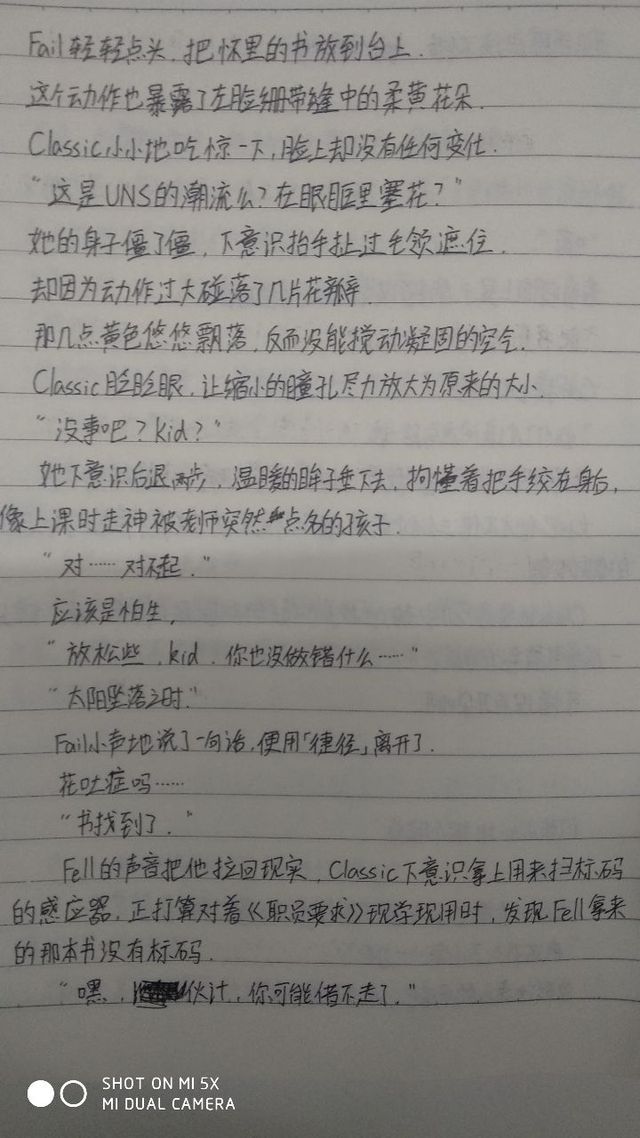 Fail轻轻点头,把怀里的书放到台上.
这个动作也暴露了左脸绷带缝中的柔黄花朵.
Classic小小地吃惊一下,脸上却没有任何变化.
“这是UNS的潮流么?在眼眶里塞花?”
她的身子僵了僵,下意识抬手扯过毛领遮住.
却因为动作过大碰落了几片花瓣.
那几点黄色悠悠飘落,反而没能搅动凝固的空气.
Classic眨眨眼,让缩小的瞳孔尽力放大为原来的大小.
“没事吧?kid?”
她下意识后退两步,温暖的眸子垂下去,拘谨着把手绞在身后,
像上课时走神被老师突然点名的孩子.
“对……对不起.”
应该是怕生,
“放松些,kid,你也没做错什么……”
“太阳坠落之时.”
Fail小声地说了一句话,便用「捷径」离开了.
花吐症吗……
“书找到了.”
Fell的声音把他拉回现实,Classic下意识拿上用来扫标码
的感应器,正打算对着《职员要求》现学现用时,发现Fell拿来
的那本书没有标码.
“嘿,伙计,你可能借不走了.”
SHOT ON MI 5X
MI DUAL CAMERA